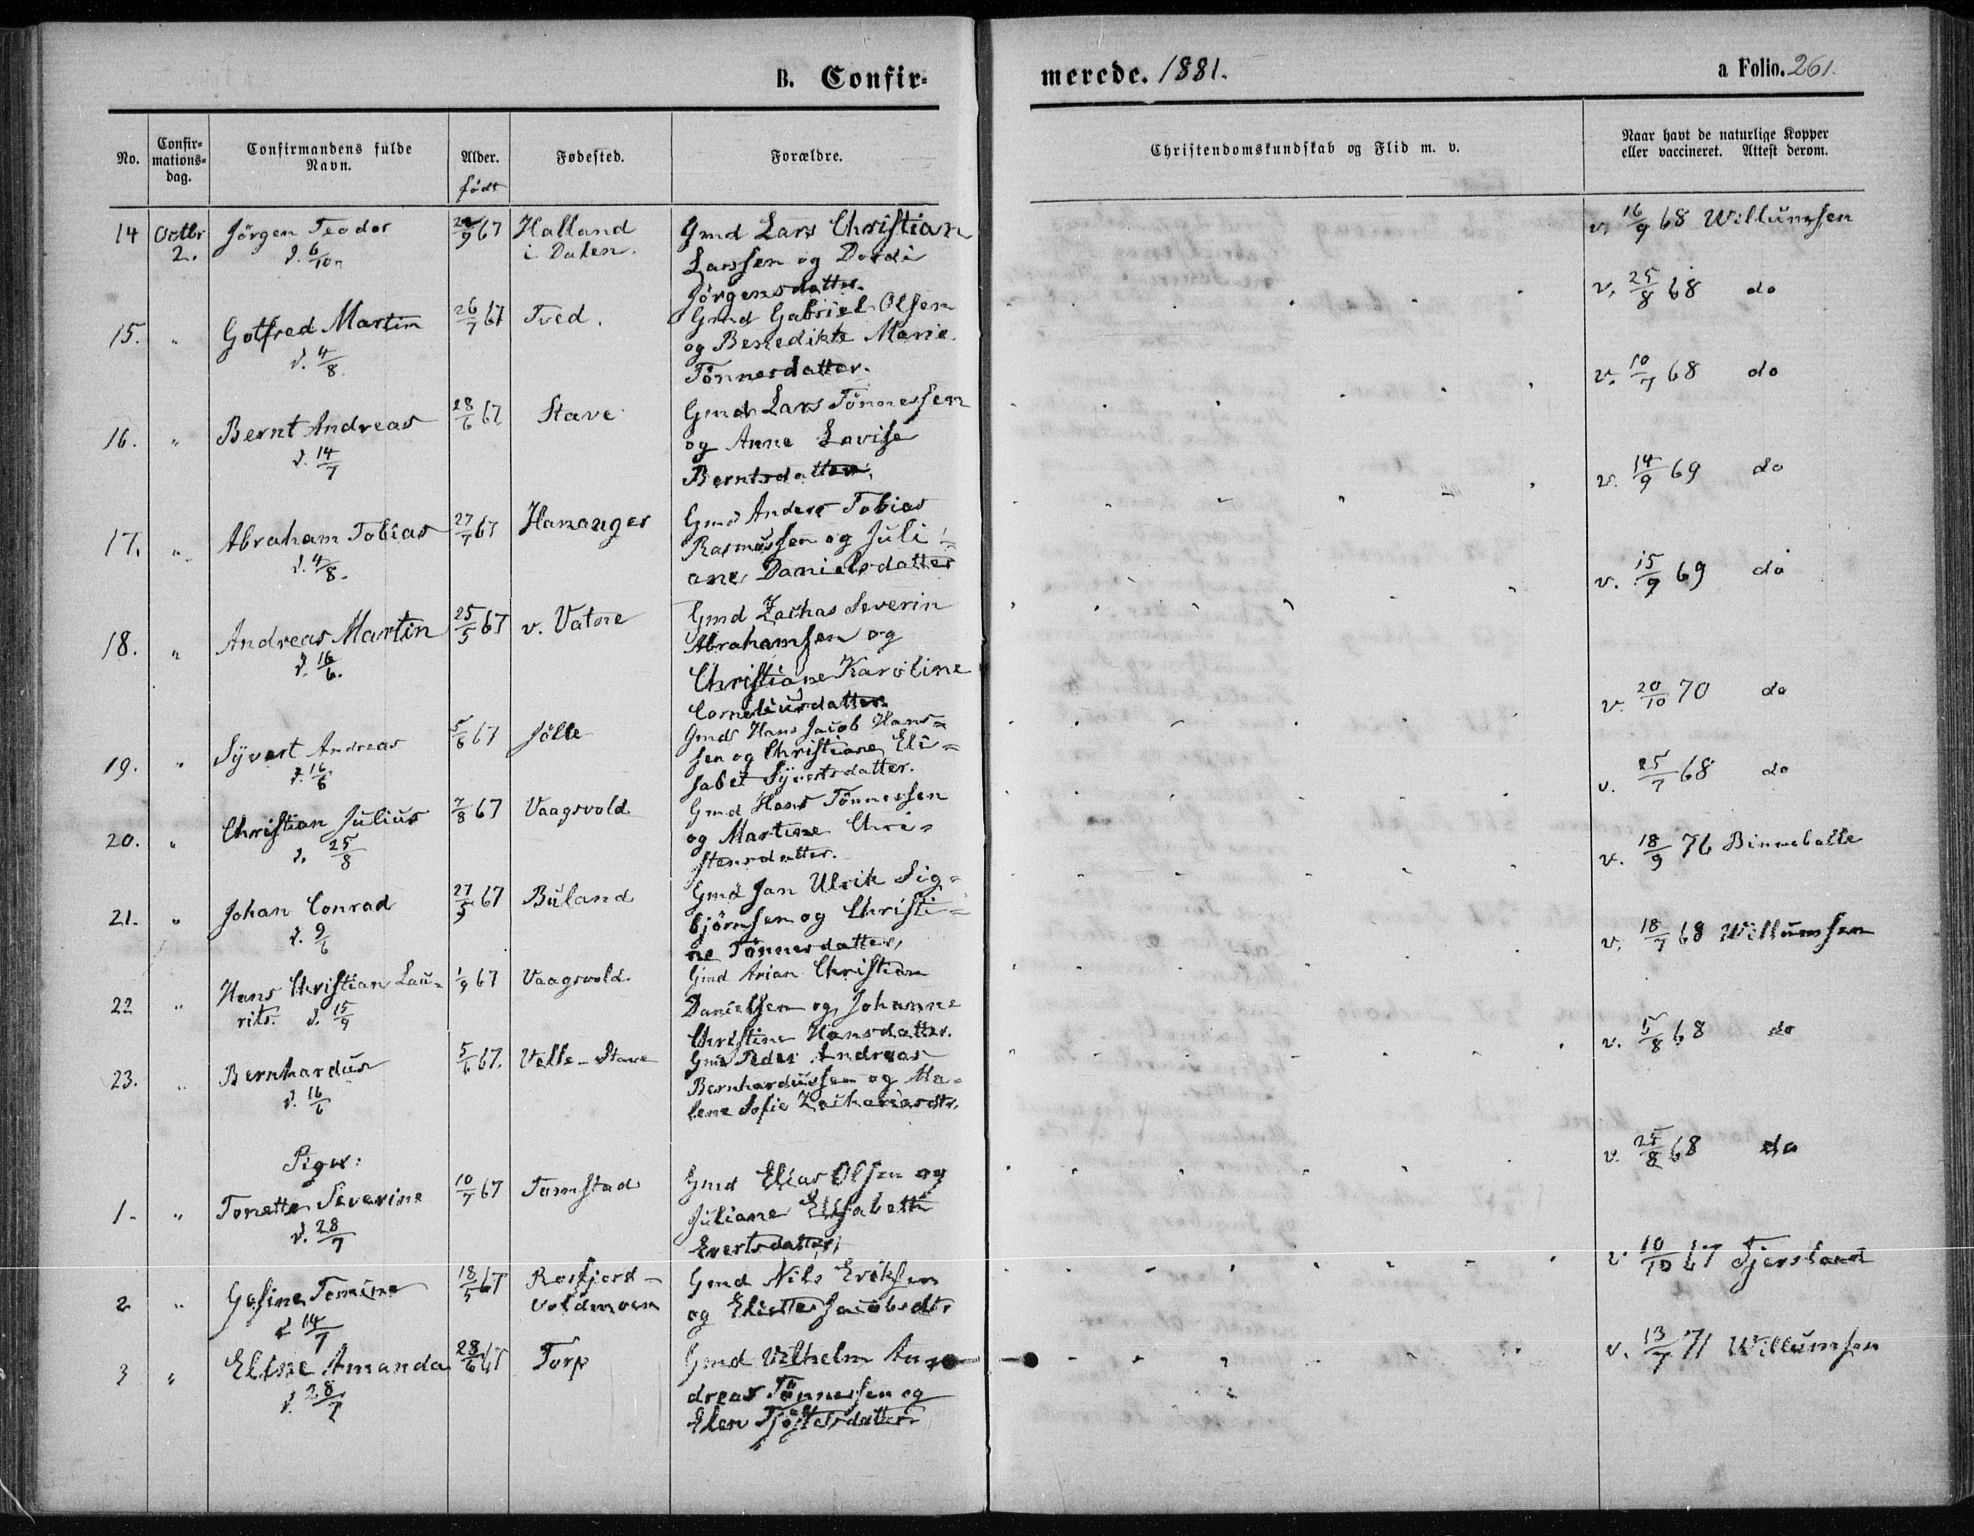 B. Confir-
merede. 1881.
a Folio. 261.
No.
Confir-
mations-
dag.
Confirmandens fulde
Navn.
Alder.
født
Fødested.
Forældre.
Christendomskundskab og Flid m. v.
Naar havt de naturlige Kopper
eller vaccineret. Attest derom.
14 Octbr Jörgen Teodor 22/9 67 Halland Gmd Lars Christian v. 16/9 68 Willumsen
2. d. 6/10 i Dalen. Larssen og Dordi
Jörgensdatter.
15. " Gotfred Martin 26/7 67 Tved. Gmd Gabriel Olsen v. 25/8 68 do
d. 4/8. og Benedikte Marie
Tönnesdatter.
16. " Bernt Andreas 28/6 67 Stave Gmd Lars Tönnessen v. 10/7 68 do
d. 14/7 og Anne Lovise
Berntsdatter.
17. " Abraham Tobias 27/7 67 Hananger Gmd Anders Tobias v. 14/9 69 do
d. 4/8. Rasmussen og Juli-
ane Danielsdatter
18. " Andreas Martin 25/5 67 v. Vatne Gmd Zachas Severin v. 15/9 69 do
d. 16/6. Abrahamsen og
Christiane Karoline
Corneliusdatter.
19. " Syvert Andreas 5/6 67 Jölle Gmd Hans Jacob Hans- v. 20/10 70 do
d. 16/6 sen og Christiane Eli-
sabet Syvertsdatter.
20. " Christian Julius 7/8 67 Vaagsvold Gmd Hans Tönnessen v. 25/7 68 do
d. 25/8 og Martine Chri-
stensdatter.
21. " Johan Conrad 27/5 67 Buland Gmd Jan Ulrik Sig- v. 18/9 76 Binneballe
d. 9/6 björnsen og Christi-
ne Tönnesdatter,
22 " Hans Christian Lau- 1/9 67 Vaagsvold Gmd Arian Christian v. 18/7 68 Willumsen
rits. d. 15/9 Danielsen og Johanne
Christine Hansdatter.
23. " Bernhardus 5/6 67. Velle-Stave Gmd Peder Andreas v. 5/8 68 do
d. 16/6 Bernhardussen og Ma-
lene Sofie Zachariasdtr.
Piger:
1. " Tonette Severine 10/7 67 Tomstad Gmd Elias Olsen og v. 25/8 68 do
d. 28/7 Juliane Elisabeth
Evertsdatter,
2 " Gesine Tomine 18/5 67 Rosfjord- Gmd Nils Eriksen v 10/10 67 Fjersland
d 14/7 voldmoen og Eliette Jacobsdtr
3 " Elene Amanda 28/6 67 Torp Gmd Vilhelm An- v. 13/7 71 Willumsen
d. 28/7 dreas Tönnessen og
Elen Tjöstelsdatter